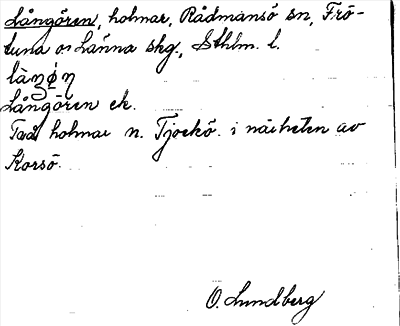 Långören, holmar, Rådmansö sn, Frö-
tuna o Länna skg., Sthlm. l.
làŋǿŋ
Långören ek.
Två holmar n. Tjockö. i närheten av
Korsö.
O. Lundberg